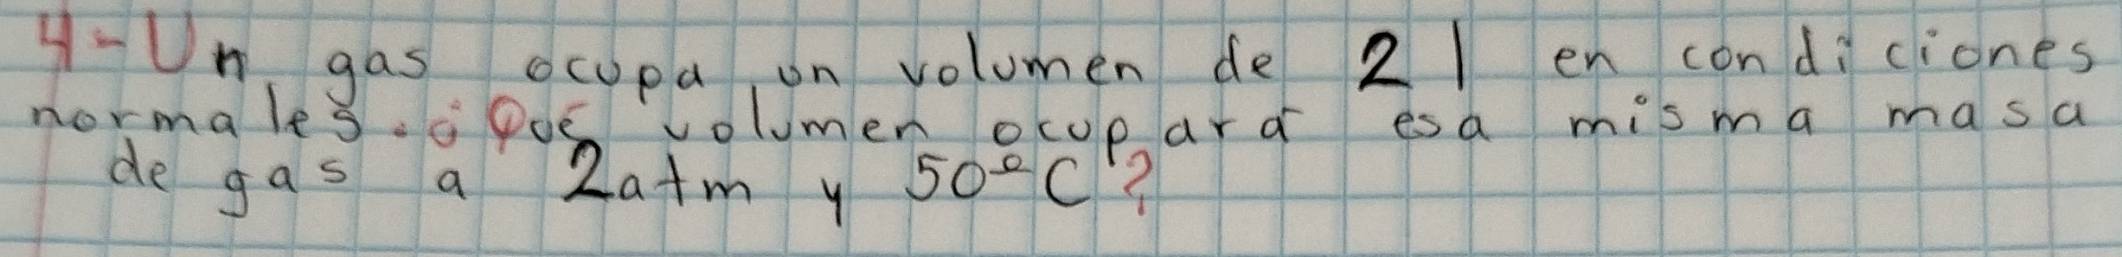 4-Un gas ocupa un volumen de 2 l en condiciones
normales. ¿Qué volumen ocupará esa misma masa
de gas a 2atm y 50ºC?